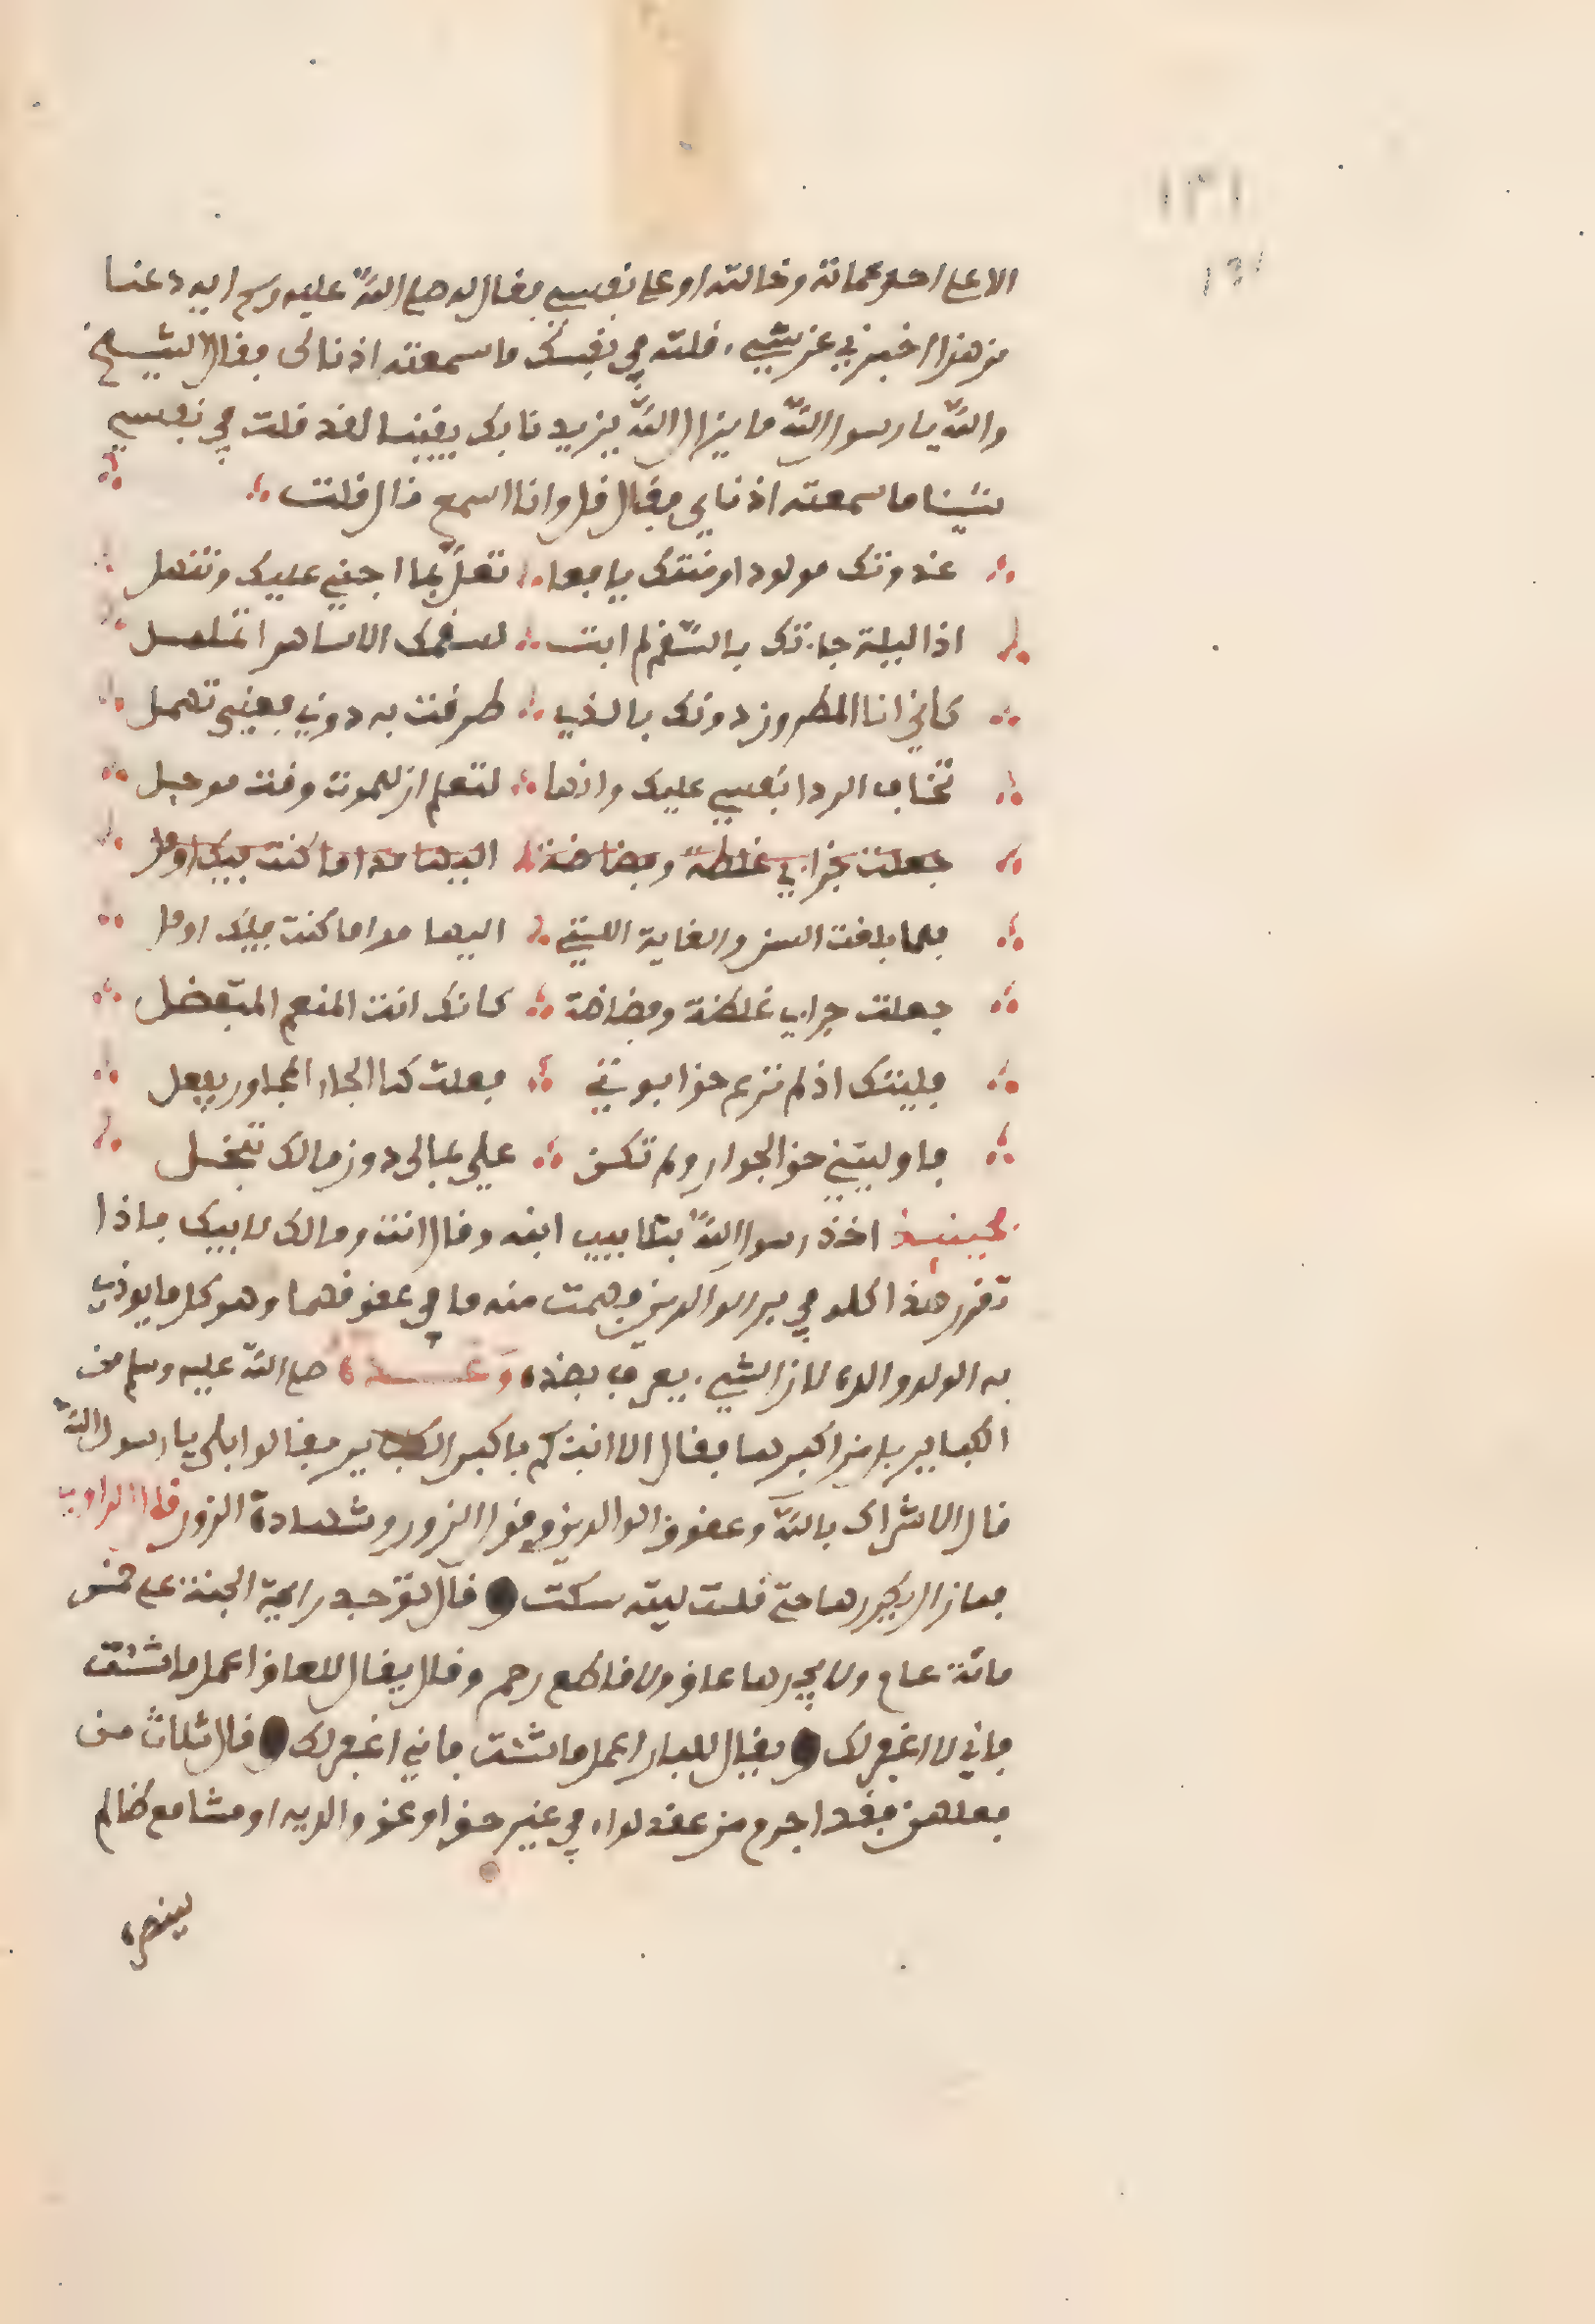 ١٣١
١٣١
الا على احدى عماته وخالته او على نفسي فقال له صلى الله عليه وسلم ايه دعنا
من هذا اخبرني عن شيء قلته في نفسك ما سمعته اذناك فقال الشيخ
والله يا رسول الله ما يزال الله يزيدنا بك يقينا لقد قلت في نفسي
شيئا ما سمعته اذناي فقال قل وانا اسمع قال قلت
غذوتك مولودا ومنتك يافعا تعل بما اجني عليك وتنهل
اذا ليلة جاءتك بالسقم لم ابت لسقمك الا ساهرا اتململ
كاني انا المطروق دونك بالذي طرقت به دوني فعيني تهمل
تخاف الردا نفسي عليك وانها لتعلم ان الموت وقت موجل
جعلت جزاءي غلظة وفضاضة اليها مدا ما كنت فيك اومل
فلما بلغت السن والغاية التي اليها مدا ما كنت فيك اومل
جعلت جزاءي غلظة وفضاضة كانك انت المنعم المتفضل
فليتك اذ لم ترع حق ابوتي فعلت كما الجار المجاور يفعل
فاوليتني حق الجوار ولم تكن علي بمالي دون مالك تبخل
فحينيذ اخذ رسول الله بتلابيب ابنه وقال انت ومالك لابيك فاذا
تقرر هذا كله في بر الوالدين فهمت منه ما في عقوقهما وهو كل ما يوذي
به الولد والده لان الشيء يعرف بضده وعده صلى الله عليه وسلم من
الكباير بل من اكبرها فقال الا انبئكم باكبر الكباير فقالوا بلى يا رسول الله
قال الاشراك بالله وعقوق الوالدين وقول الزور وشهادة الزور قال الراوي
فما زال يكررها حتى قلت ليته سكت وقال لتوجد رايحة الجنة على خمس
مائة عام ولا يجدها عاق ولا قاطع رحم وقال يقال للعاق اعمل ما شئت
فاني لا اغفر لك ويقال للبار اعمل ما شئت فاني اغفر لك وقال ثلاث من
فعلهن فقد اجرم من عقد لواء في غير حق او عق والديه او مشا مع ظالم
لينصره